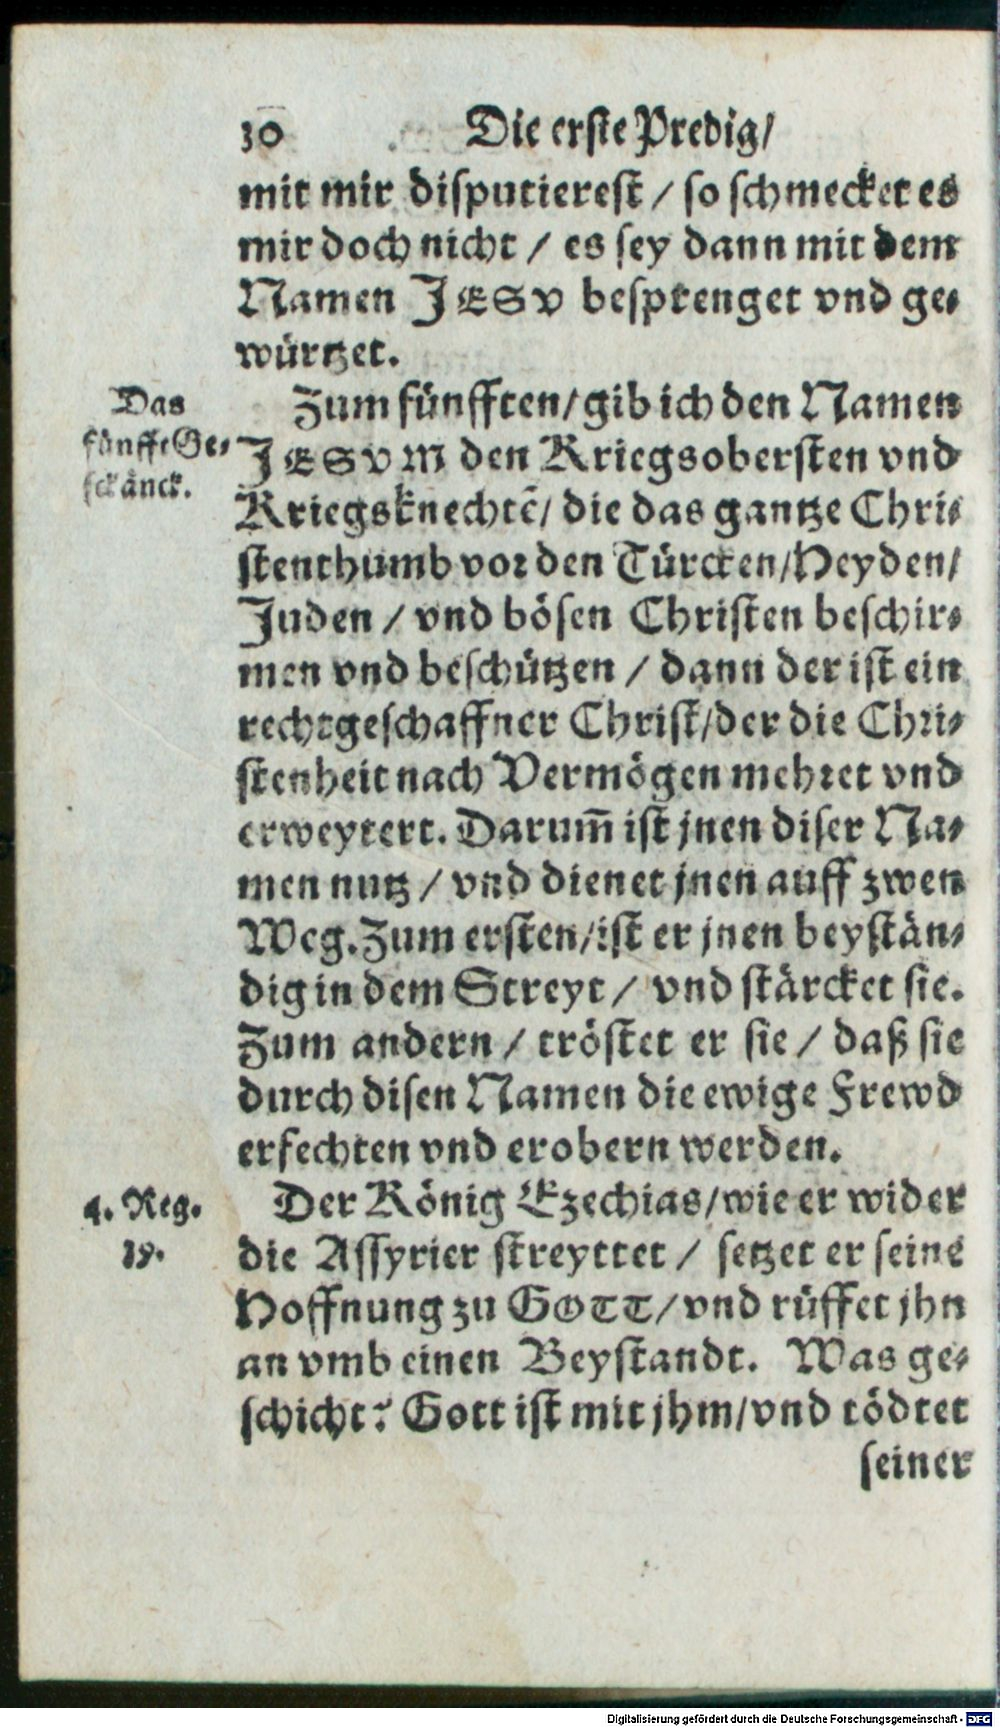 30 Die erste Predig/
mit mir disputierest / so schmecket es
mir doch nicht / es sey dann mit dem
Namen JESV besprenget vnd ge⸗
würtzet.
Das
fünffte Ge⸗
schänck.
Zum fünfften/ gib ich den Namen
JESVM den Kriegsobersten vnd
Kriegsknechtē/ die das gantze Chri⸗
stenthumb vor den Türcken/Heyden/
Juden / vnd bösen Christen beschir⸗
men vnd beschützen / dann der ist ein
rechtgeschaffner Christ/der die Chri⸗
stenheit nach Vermögen mehret vnd
erweytert. Darum̄ ist jnen diser Na⸗
men nutz / vnd dienet jnen auff zwen
Weg. Zum ersten/ ist er jnen beystän⸗
dig in dem Streyt / vnd stärcket sie.
Zum andern / tröstet er sie / daß sie
durch disen Namen die ewige Frewd
erfechten vnd erobern werden.
4. Reg.
19.
Der König Ezechias/wie er wider
die Assyrier streyttet / setzet er seine
Hoffnung zu GOTT/vnd rüffet jhn
an vmb einen Beystandt. Was ge⸗
schicht? Gott ist mit jhm/vnd tödtet
seiner
Digitalisierung gefördert durch die Deutsche Forschungsgemeinschaft - DFG